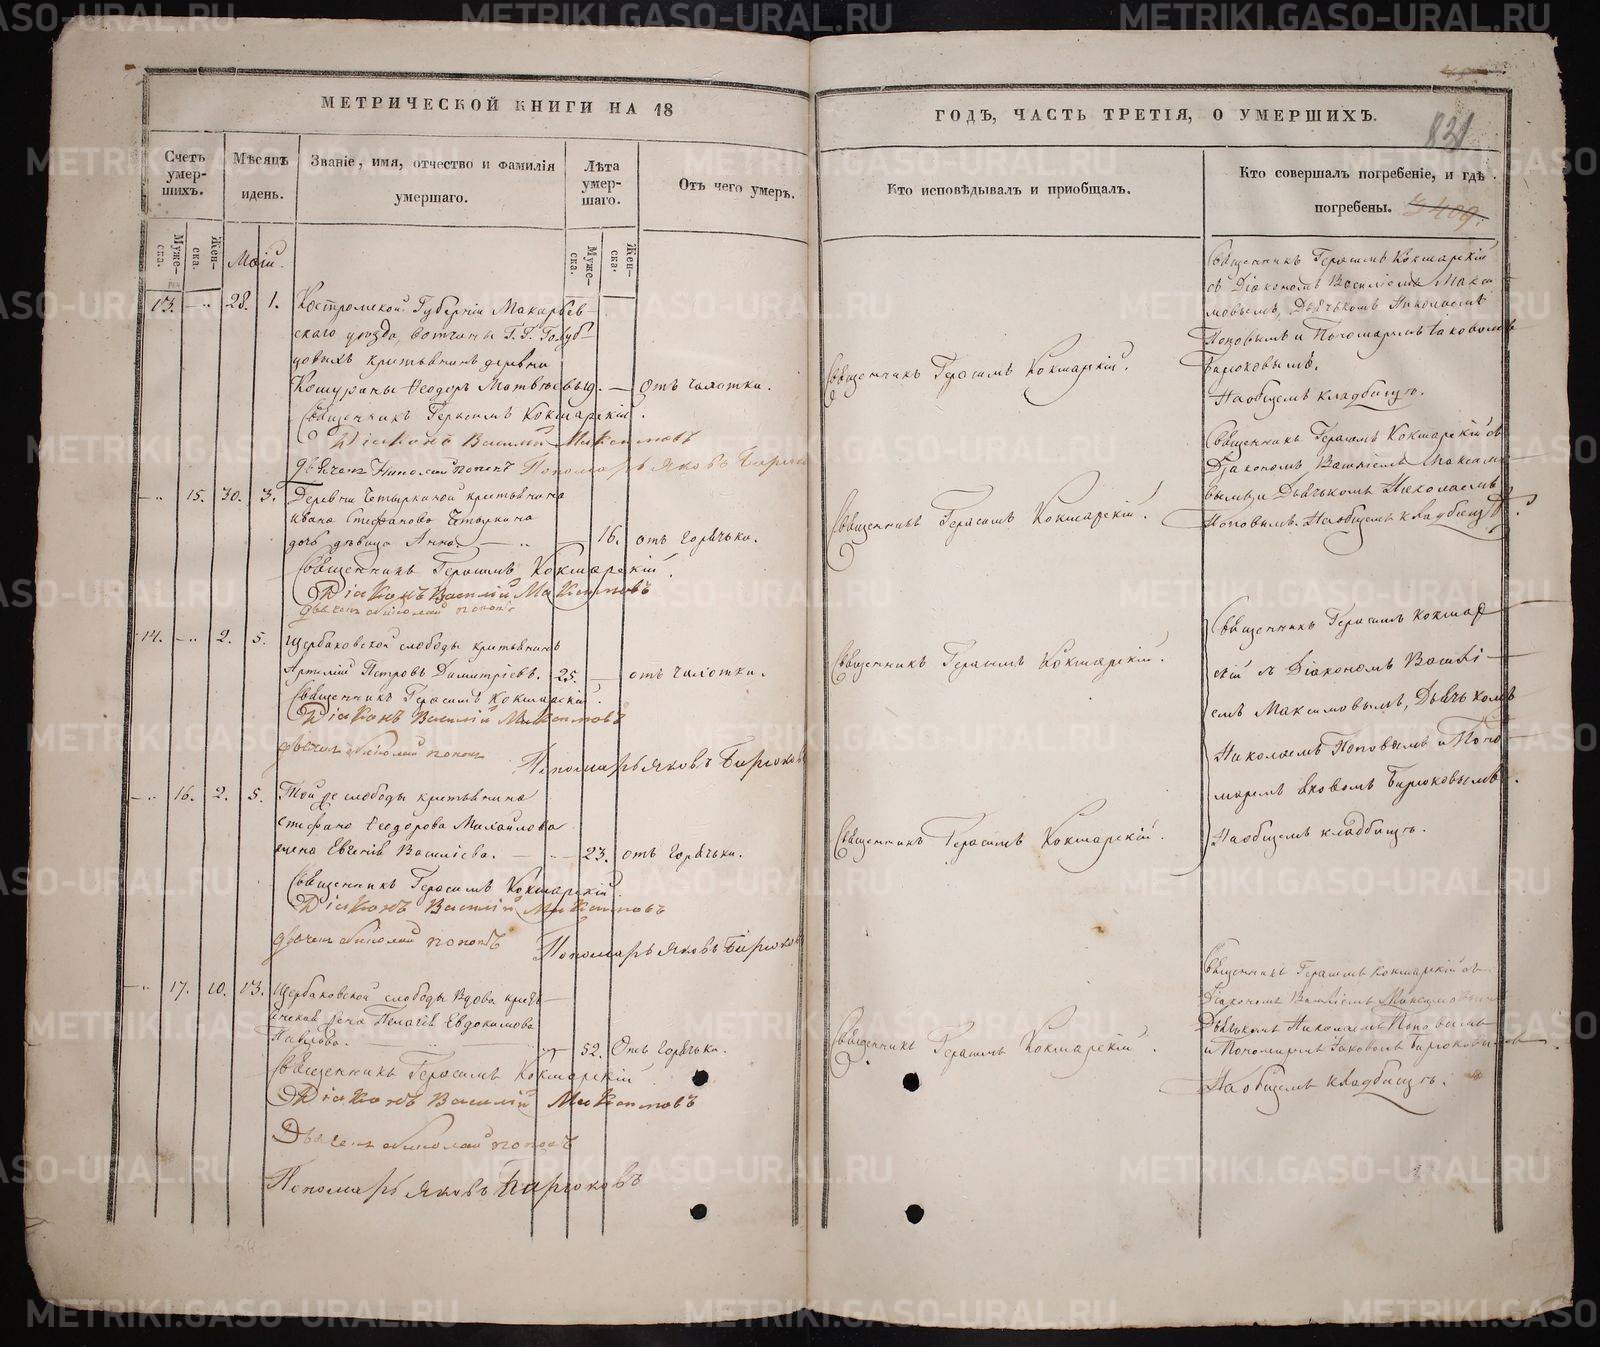 МЕТРИЧЕСКОЙ КНИГИ НА 18
ГОДЪ, ЧАСТЬ ТРЕТІЯ, О УМЕРШИХЪ.
831
Счетъ умершихъ.
Мѣсяцъ и день.
Званіе, имя, отчество и фамилія умершаго.
Лѣта умершаго.
Отъ чего умеръ.
Кто исповѣдывалъ и пріобщалъ.
Кто совершалъ погребеніе, и гдѣ погребены.
Мужеска.
Женска.
Маій.
Мужеска.
Женска.
13. 28. 1. Костромской Губерніи Макарьев-
скаго уѣзда, вотчины Г.Г. Голуб-
цовыхъ крестьянинъ деревни
Ѳеодоръ Матвѣевъ 19. — отъ чахотки.
Священникъ Герасимъ Кокшарскій.
Діаконъ Василій Максимовъ
Дьячекъ Николай Поповъ Пономарь Яковъ Бирюков
Священникъ Герасимъ Кокшарскій.
Священникъ Герасимъ Кокшарскій
съ Діакономъ Василіемъ Макси
мовымъ, Дьячькомъ Николаемъ
Поповымъ и Пономаремъ Іаковомъ
Бирюковымъ.
На общемъ кладбищѣ.
15. 30. 3. Деревни Четыркиной крестьянина
Ивана Стефанова Четыркина
дочь дѣвица Анна. — 16. отъ горячьки.
Священникъ Герасимъ Кокшарскій.
Діаконъ Василій Максимовъ
Дьячекъ Николай Поповъ
Священникъ Герасимъ Кокшарскій.
Священникъ Герасимъ Кокшарскій съ
Діакономъ Василіемъ Максимо
вымъ и Дьячькомъ Николаемъ
Поповымъ. На общемъ кладбищѣ.
14. 2. 5. Щербаковской слободы крестьянинъ
Петровъ Димитріевъ. 25. — отъ чахотки.
Священникъ Герасимъ Кокшарскій.
Діаконъ Василій Максимовъ
Дьячекъ Николай Поповъ
Пономарь Яковъ Бирюков
Священникъ Герасимъ Кокшарскій.
Священникъ Герасимъ Кокшар
скій съ Діакономъ Васили—
емъ Максимовымъ, Дьячькомъ
Николаемъ Поповымъ и Поно
маремъ Іаковомъ Бирюковымъ.
На общемъ кладбищѣ.
16. 2. 5. Той же слободы крестьянина
Стефана Ѳеодорова Михайлова
жена Евгенія Василіева. — 23. отъ горячьки.
Священникъ Герасимъ Кокшарскій.
Діаконъ Василій Максимовъ
Дьячекъ Николай Поповъ
Пономарь Яковъ Бирюков
Священникъ Герасимъ Кокшарскій.
17. 10. 13. Щербаковской слободы Вдова кресть—
янская жена Пелагія Евдокимова
Павлова. 52. Отъ горячьки.
Священникъ Герасимъ Кокшарскій
Діаконъ Василій Максимовъ
Дьячекъ Николай Поповъ
Пономарь Яковъ Бирюковъ
Священникъ Герасимъ Кокшарскій.
Священникъ Герасимъ Кокшарскій съ
Діакономъ Василіемъ Максимовымъ
Дьячькомъ Николаемъ Поповымъ
и Пономаремъ Іаковомъ Бирюковымъ
На общемъ кладбищѣ.
METRIKI.GASO-URAL.RU